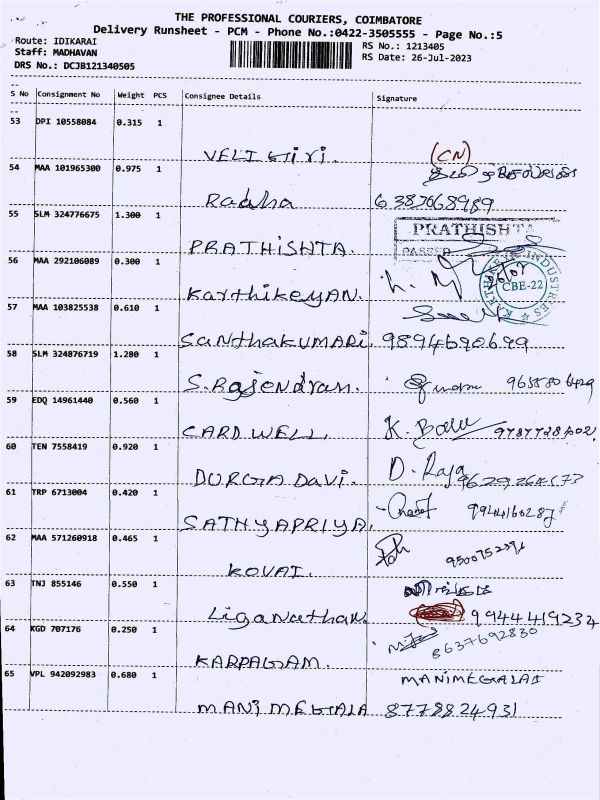 THE PROFESSIONAL COURIERS, COIMBATORE
Delivery Runsheet - PCM - Phone No.:0422-3505555 - Page No.:5
Route: IDIKARAI
Staff: MADHAVAN
DRS No.: DCJB121340505
RS No.: 1213405
RS Date: 26-Jul-2023
S No Consignment No Weight PCS Consignee Details Signature
53 DPI 10558084 0.315 1
VELI GIRI. (CN)
54 MAA 101965300 0.975 1
Radha 6383768989
55 SLM 324776675 1.300 1
PRATHISHTA
PASSED
PRATHISHTA.
56 MAA 292106089 0.300 1
CBE-22
KarthikeyAN.
57 MAA 103825538 0.610 1
SanthakUMARi. 9894690699
58 SLM 324876719 1.280 1
S.Rajendran.
59 EDQ 14961440 0.560 1
K. Balu
CARD WELL.
60 TEN 7558419 0.920 1
D. Raja
DURGA Davi.
61 TRP 6713004 0.420 1
SATHYAPRIYA.
62 MAA 571260918 0.465 1
KOVAI.
63 TNJ 855146 0.550 1
Liganathan. 9944419234
64 KGD 707176 0.250 1
8637692830
KARPAGAM.
65 VPL 942092983 0.680 1
MANIMEGALAI
MANIMEGALA 8778824931